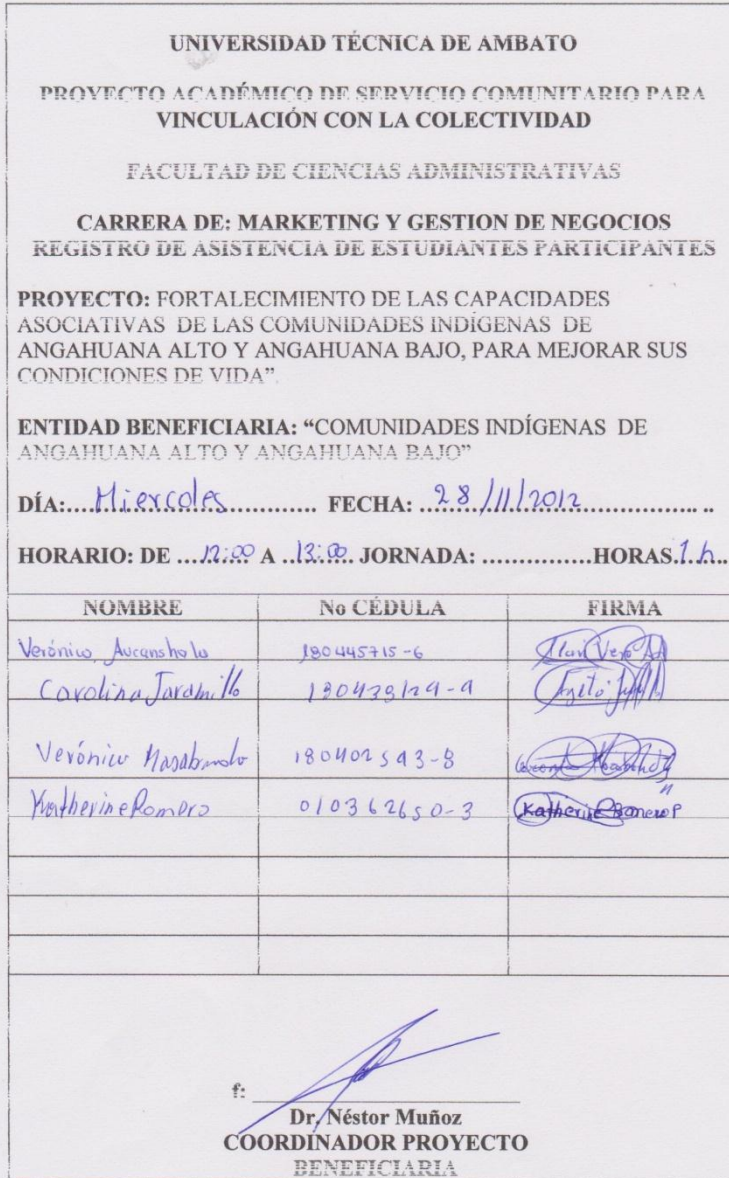 UNIVERSIDAD TÉCNICA DE AMBATO
PROYECTO ACADÉMICO DE SERVICIO COMUNITARIO PARA
VINCULACIÓN CON LA COLECTIVIDAD
FACULTAD DE CIENCIAS ADMINISTRATIVAS
CARRERA DE: MARKETING Y GESTION DE NEGOCIOS
REGISTRO DE ASISTENCIA DE ESTUDIANTES PARTICIPANTES
PROYECTO: FORTALECIMIENTO DE LAS CAPACIDADES
ASOCIATIVAS DE LAS COMUNIDADES INDÍGENAS DE
ANGAHUANA ALTO Y ANGAHUANA BAJO, PARA MEJORAR SUS
CONDICIONES DE VIDA”.
ENTIDAD BENEFICIARIA: “COMUNIDADES INDÍGENAS DE
ANGAHUANA ALTO Y ANGAHUANA BAJO”
DÍA:....Miercoles............. FECHA: ...28/11/2012.................. ..
HORARIO: DE ....12:00... A ...13:00... JORNADA: ...............HORAS.1 h..
NOMBRE No CÉDULA FIRMA
Verónica 180445715-6
Carolina Jaramillo
Verónica 180402593-8
Katherine Romero 010362650-3 Katherine Romero P
f:
Dr. Néstor Muñoz
COORDINADOR PROYECTO
BENEFICIARIA